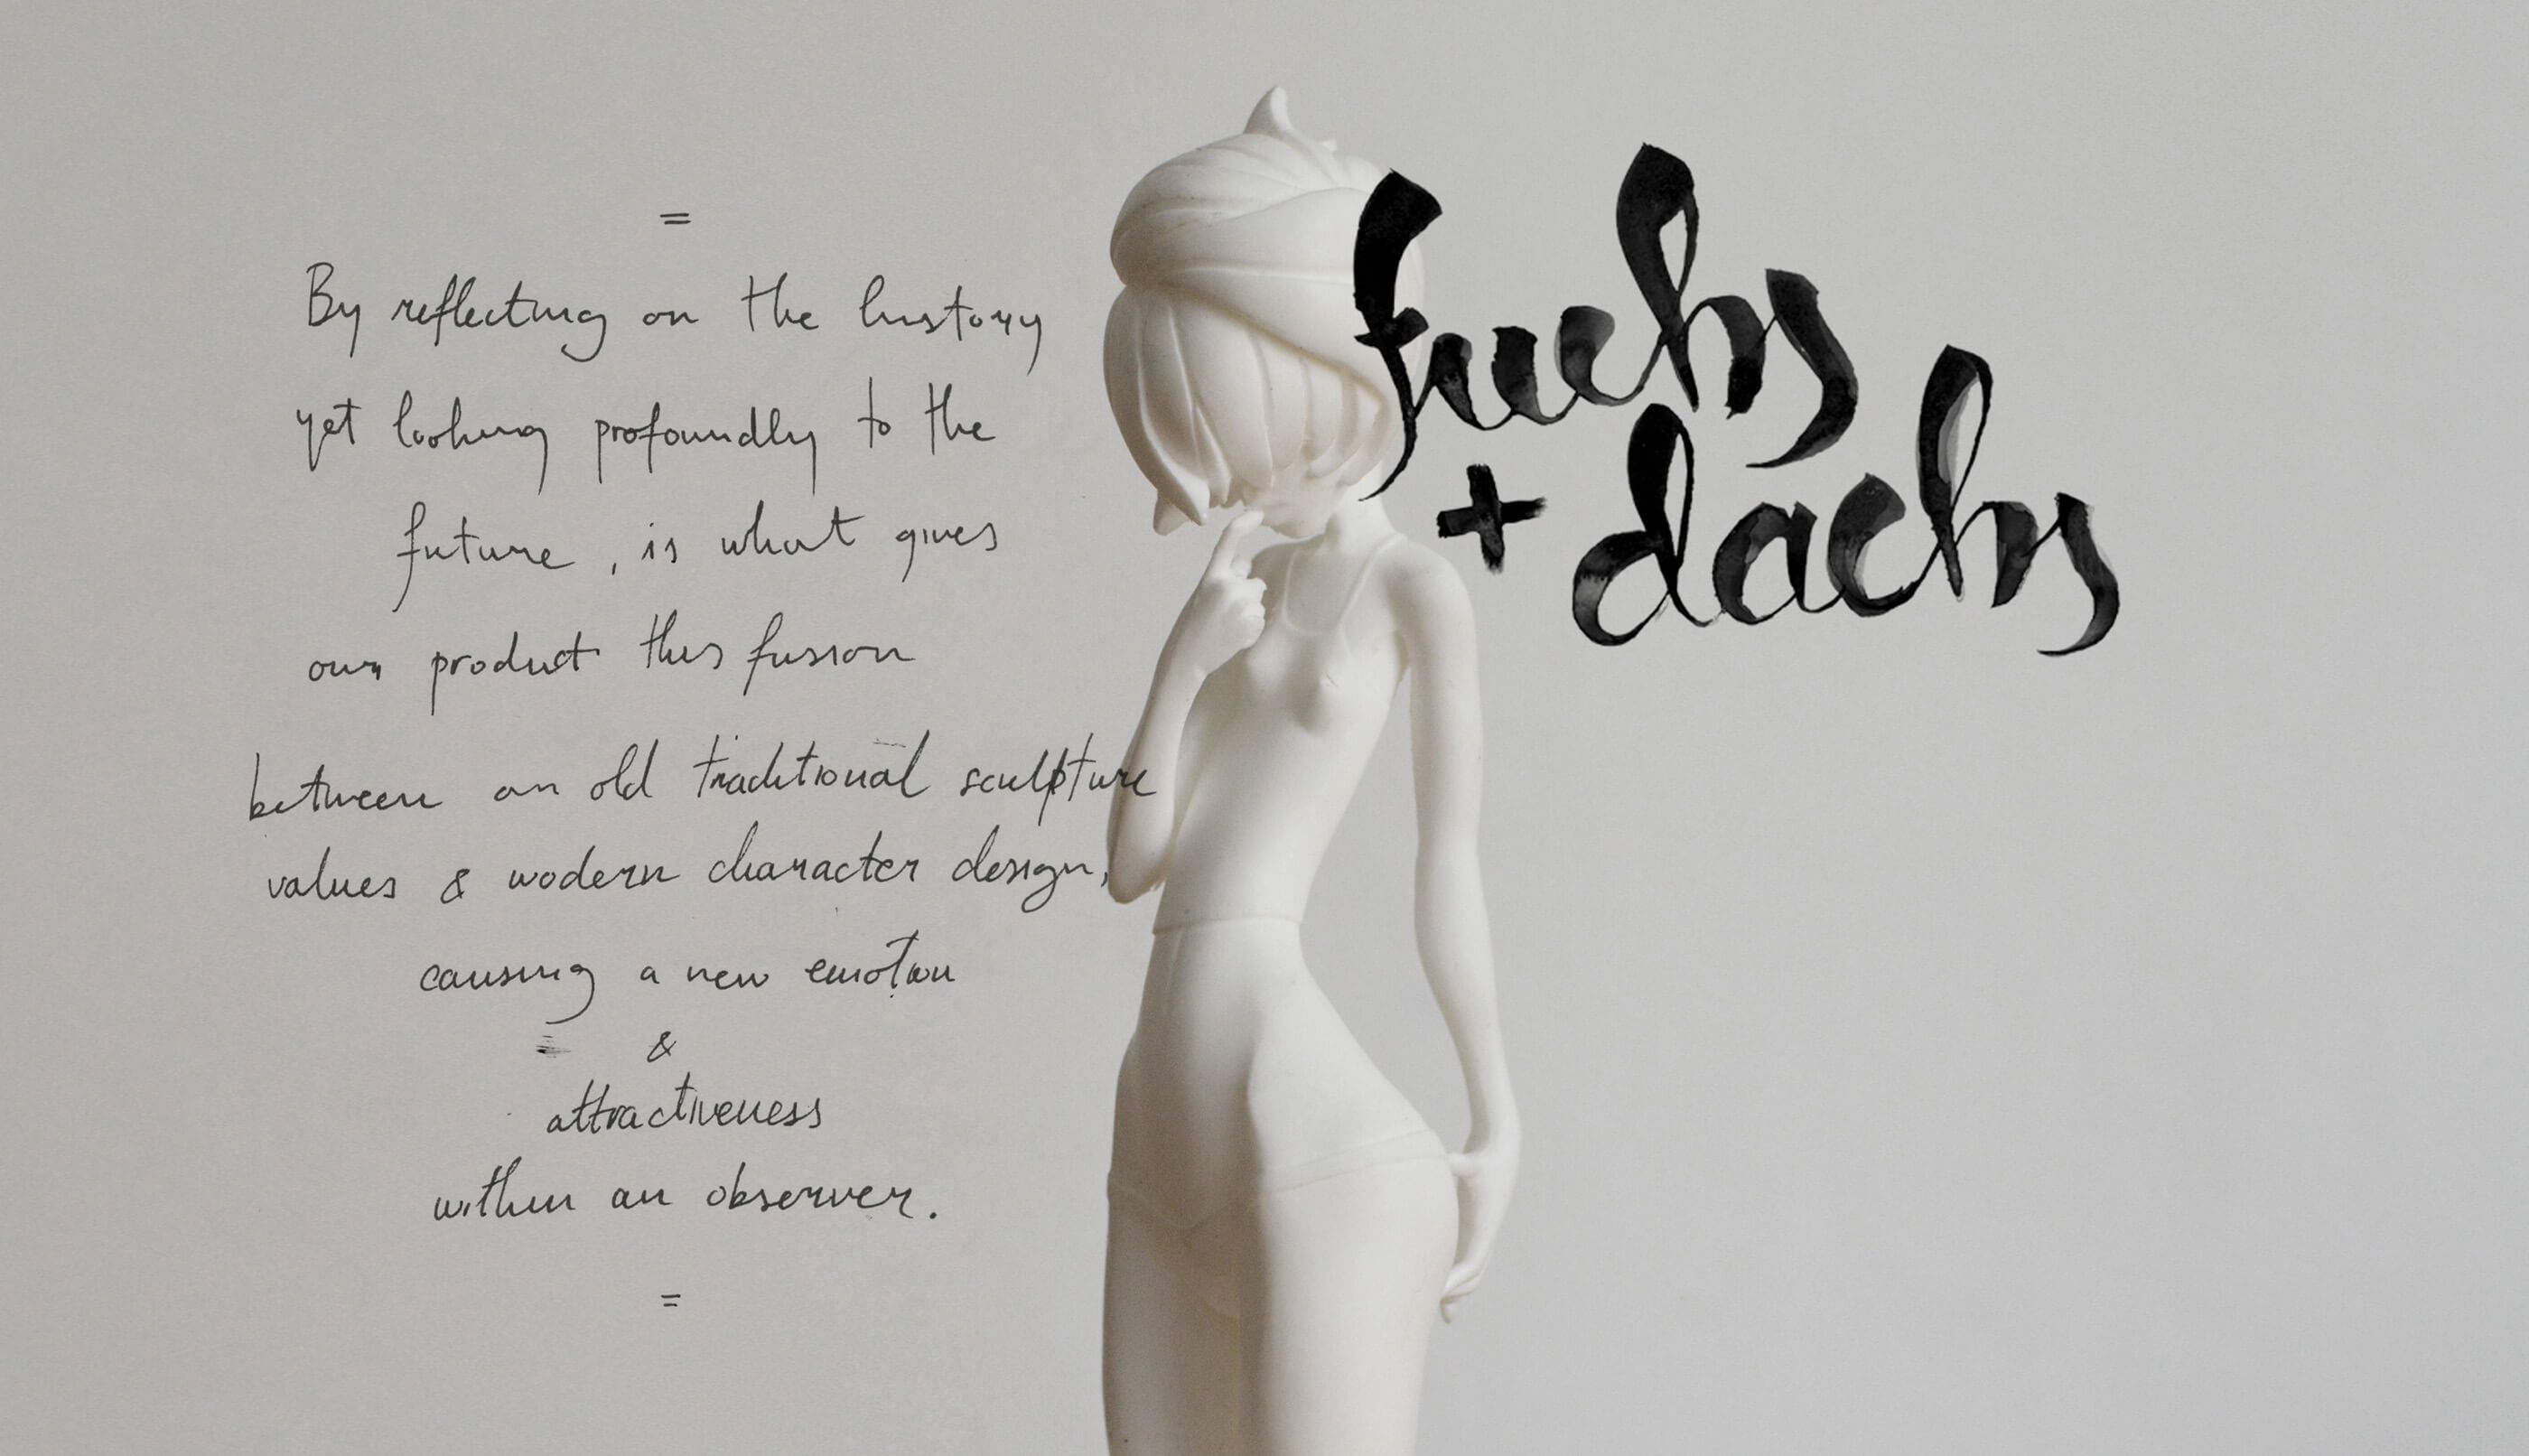 =
By reflecting on the history
yet looking profoundly to the
future, is what gives
our product this fusion
between an old traditional sculpture
values & modern character design,
causing a new emotion
&
attractiveness
within an observer.
=
fuchs
+ dachs